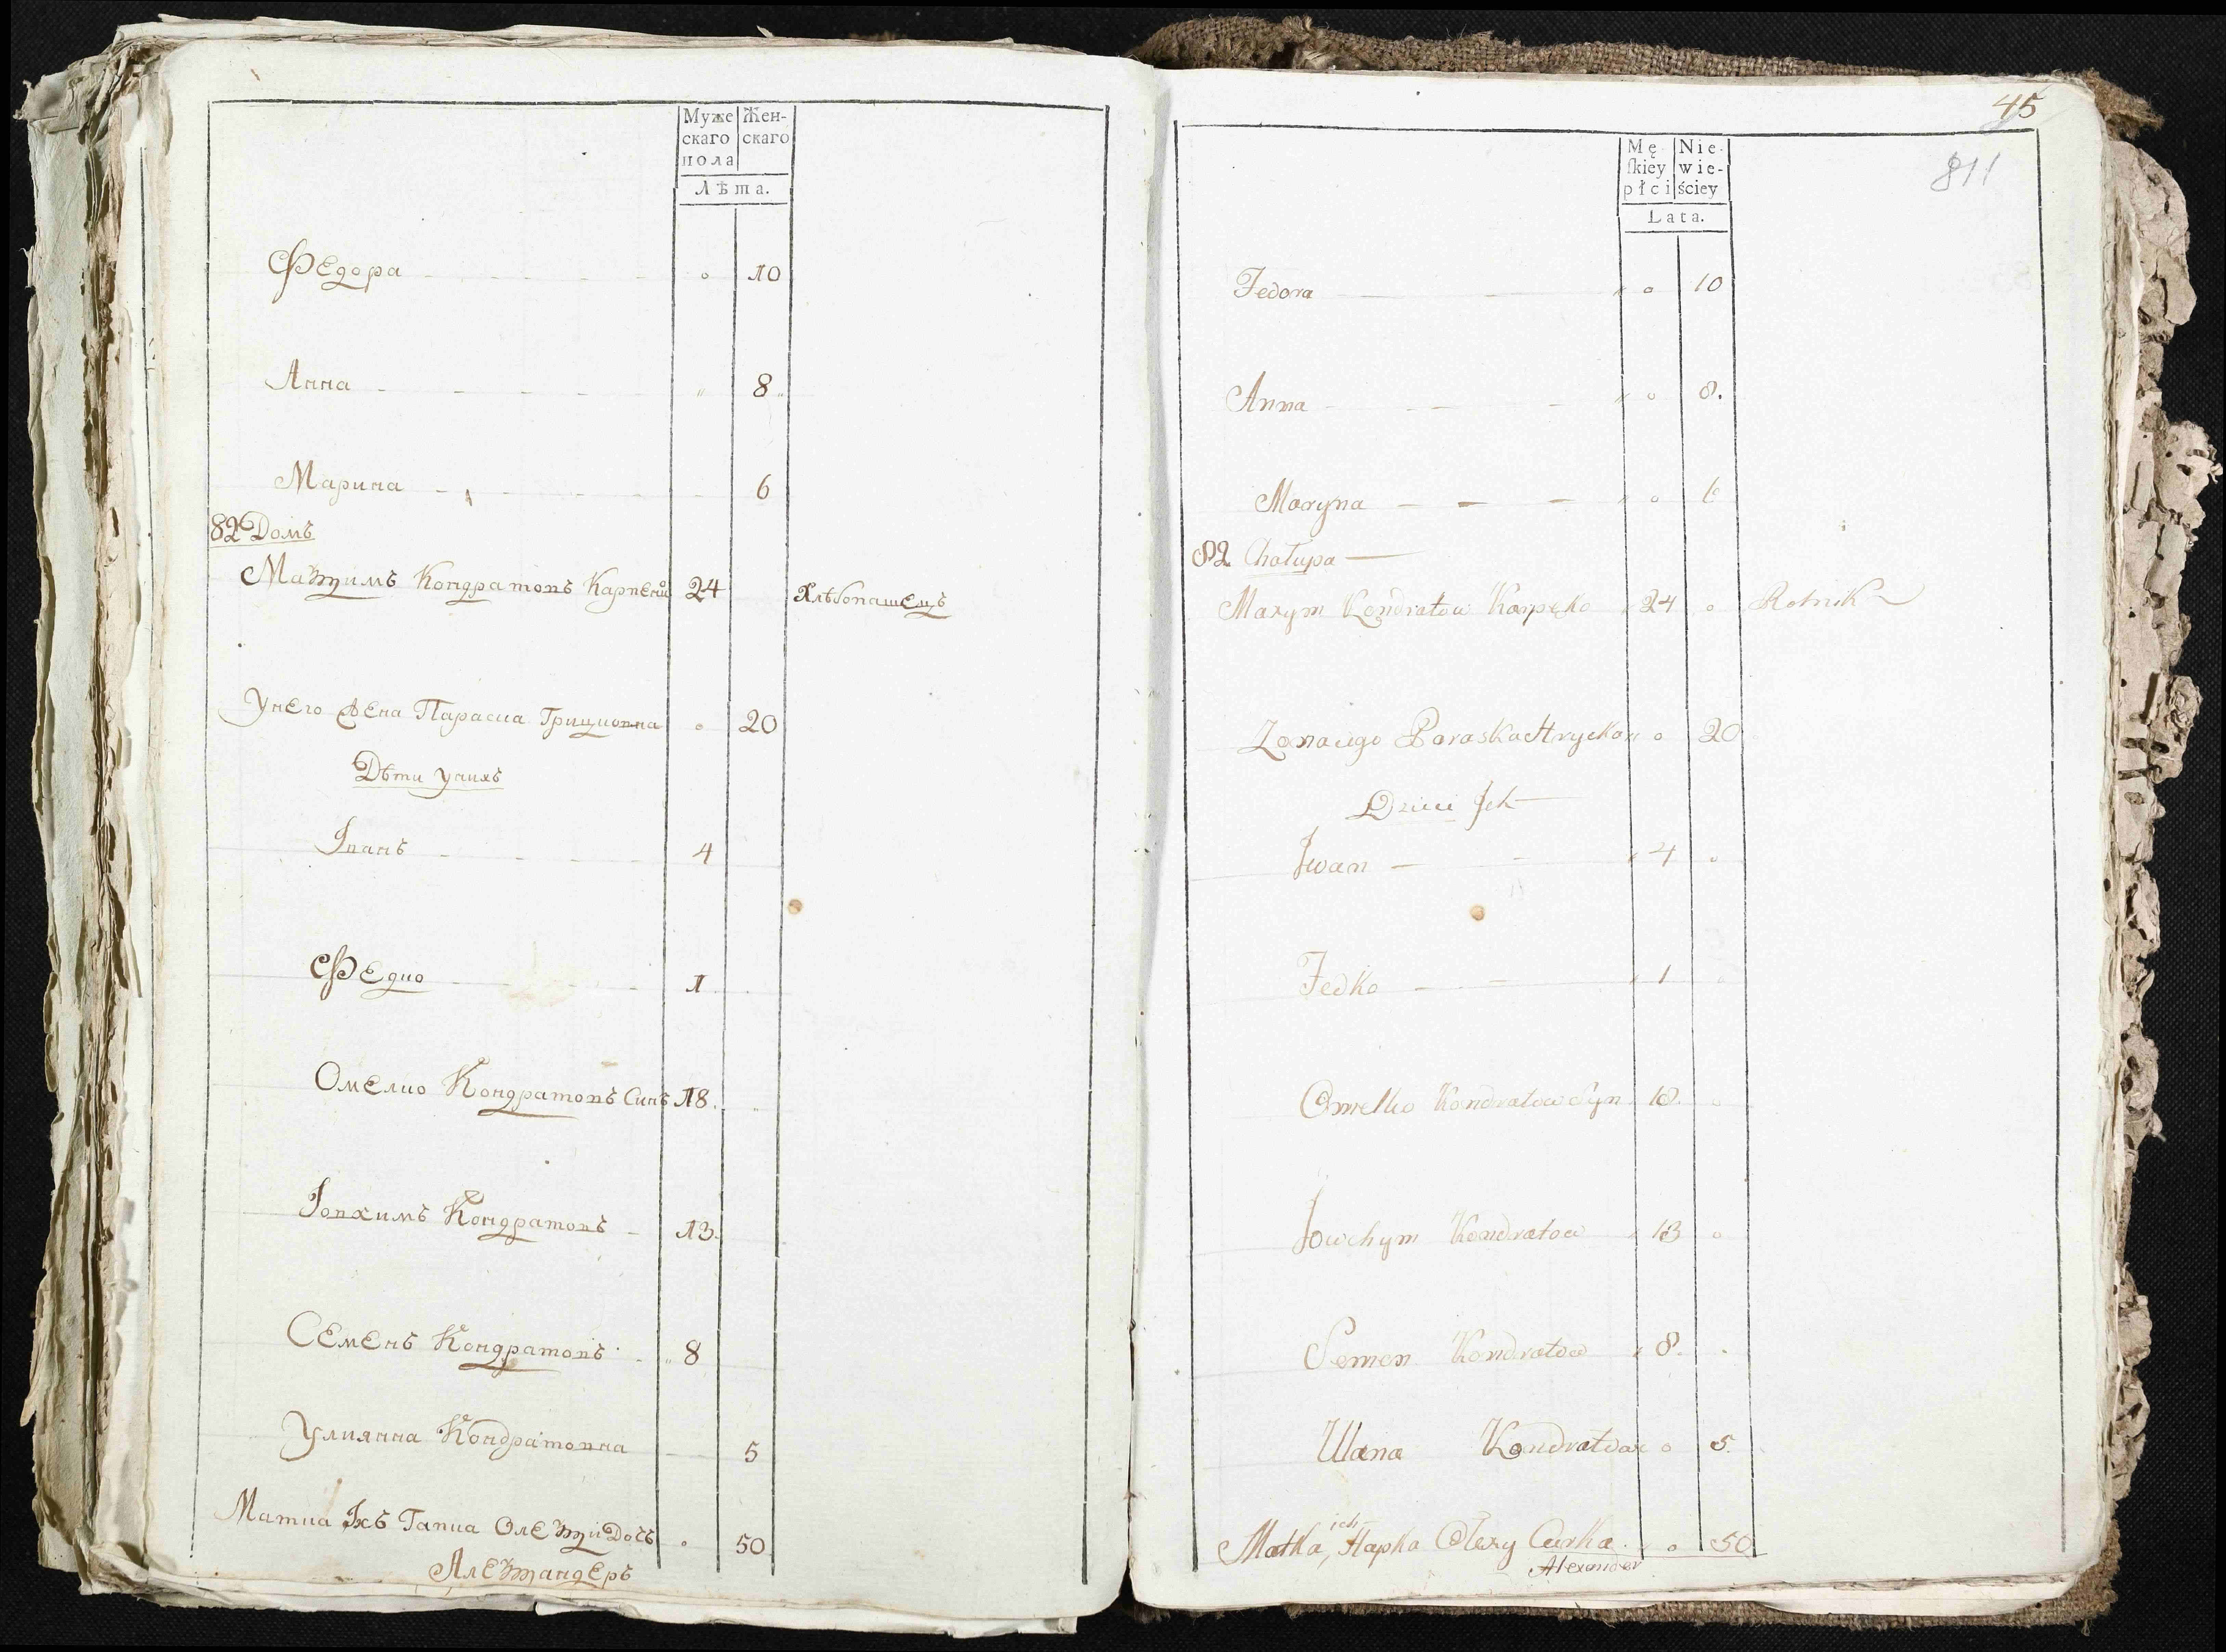 Муже
скаго
пола
Жен-
скаго
Лѣта.
Федора 0 10
Анна " 8
Марина 6
82 Домъ
Маѯимъ Кондратовъ Карпенко 24 Хлѣбопашецъ
Унего Жена Параска Грицковна 0 20
Дѣти унихъ
Іванъ 4
Федко 1
Омелко Кондратовъ Синъ 18
Іовхимъ Кондратовъ 13
Семенъ Кондратовъ 8
Улиянна Кондратовна 5
Матка Іхъ Гапка Олеѯи Дочъ 0 50
Алеѯандеръ
45
811
Mę-
ſkiey
płci
Nie-
wie-
ściey
Lata.
Fedora " 0 10
Anna " 0 8.
Maryna " 0 6
82 Chałupa
Maxym Kondratow Karpęko " 24 0 Rolnik
Zonaiego Paraska Hryckow 0 20
Dzieci Jch
Jwan " 4 0
Fedko " 1 0
Omelko Kondratow Syn 18 0
Jowchym Kondratow " 13 0
Semen Kondratow " 8
Ulana Kondratow 0 5.
Matka, ich Hapka Olexy Curka " 0 50
Alexander